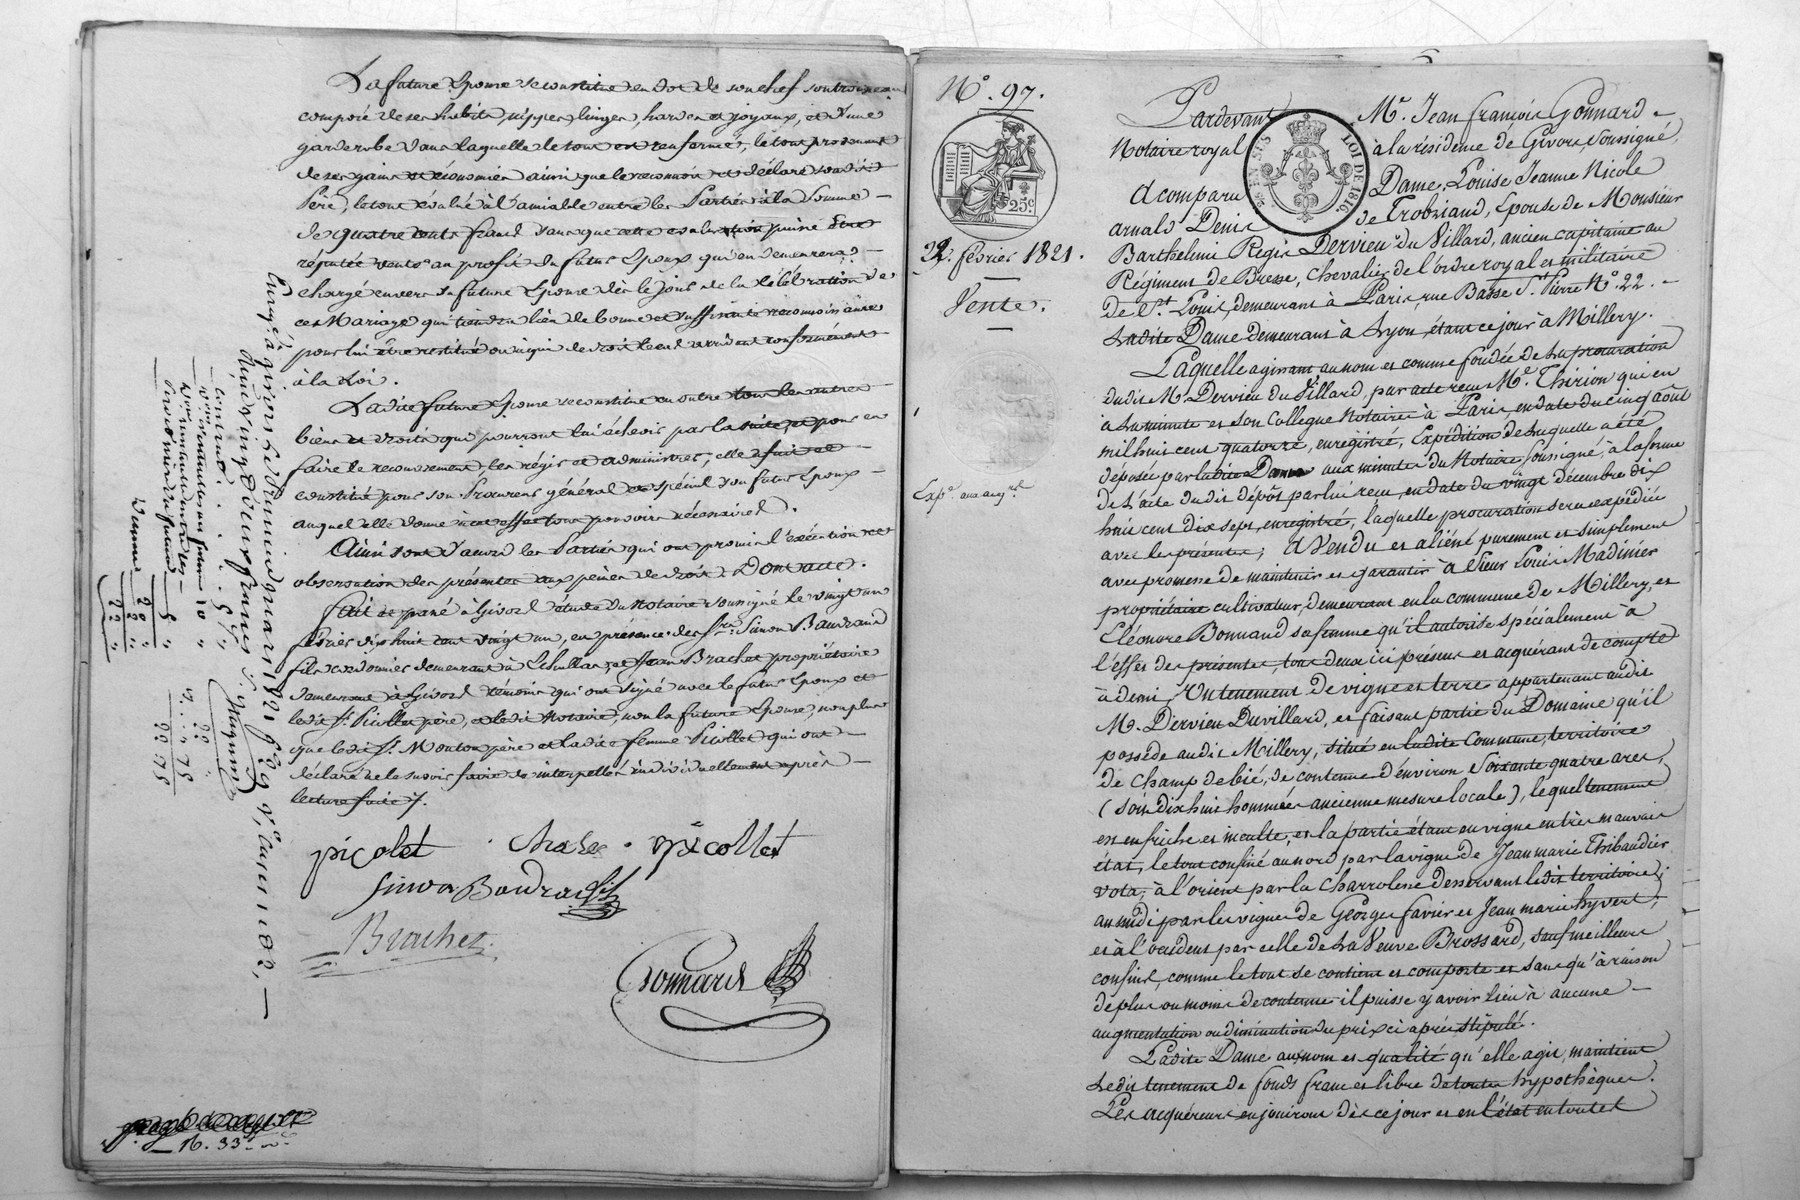 La future Epouse se constitue en dot de son chef son trousseau
composé de ses habits, nippes, linges, hardes et joyaux, et d'une
garderobe dans laquelle le tout est renfermé, le tout provenant
de ses gains et économies ainsi que le reconnoit et déclare sondit
Père, le tout évalué à l'amiable entre les Parties à la somme
de quatre cents francs sans que cette evaluation puisse être
réputée vente au profit du futur Epoux qui en demeurera
chargé envers sa future Epouse dès le jour de la célébration de
ces Mariage qui tiendra lieu de bonne et suffisante reconnoissance
pour lui être restitué ou à qui de droit le cas arrivant conformément
à la Loi.
Ladite future Epouse se constitue en outre tous les autres
biens et droits qui pourront lui échevir par la suite, et pour en
faire le recouvrement, les régir et administrer, elle a fait et
constitué pour son Procureur général et spécial son futur Epoux
auquel elle donne à cet effet tous pouvoirs nécessaires.
Ainsi sont d'accord les Parties qui ont promis l'exécution et
observation des présentes aux peines de droit. Dont acte.
Fait et passé à Givors étude du Notaire soussigné le vingt un
février dix huit cent vingt un, en présence des Srs. Simon Baudrand
fils cordonnier demeurant à Echallas, et Jean Brachet propriétaire
demeurant à Givors témoins qui ont signé avec le futur Epoux et
ledit Sr. Picollet père, et ledit Notaire, non la future Epouse, non plus
que ledit Sr. Mouton père et ladite femme Picollet qui ont
déclaré ne le savoir faire de ce interpellés individuellement après
lecture faite ./.
picolet
picollet
Simon Baudrand fils
Brachet
Gonnard
16. 33
Enregé. à givors le deux mars 1821 fo. 89 Vo. Cases 1 et 2,
N°. 97.
25c
22. février 1821.
Vente.
Expé. aux acqrs.
LOI DE 1816.
Pardevant Me. Jean François Gonnard
Notaire royal à la résidence de Givors soussigné,
a comparu Dame Louise Jeanne Nicole
arnals Denis de Trobriand, Epouse de Monsieur
Barthelimi Regis Dervieu du Villard, ancien capitaine au
Régiment de Bresse, Chevalier de l'ordre royal et militaire
de St. Louis, demeurant à Paris, rue Basse St. Pierre N°. 22.
Ladite Dame demeurant à Lyon, étant ce jour à Millery.
Laquelle agissant au nom et comme fondée de la procuration
dudit Mr. Dervieu du Villard, par acte reçu Me. Thirion qui en
a la minute et son Collegue Notaires à Paris en date du cinq août
mil huit cent quatorze, enregistré, Expédition de laquelle a été
déposée par ladite Dame aux minutes du Notaire soussigné, à la forme
de l'acte dudit dépôt par lui reçu, en date du vingt décembre dix
huit cent dix sept, enregistré, laquelle procuration sera expédiée
avec les présentes; a Vendu et aliéné purement et simplement
avec promesse de maintenir et garantir à Sieur Louis Madinier
propriétaire cultivateur, demeurant en la commune de Millery, et
Eléonore Bonnand sa femme qu'il autorise spécialement à
l'effet des présentes, tous deux ici présens et acquérans de compte
à demi, Un tenement de vigne et terre appartenant audit
Mr. Dervieu Duvillard, et faisant partie du Domaine qu'il
possède audit Millery, situé en ladite Commune, territoire
de Champ de bié, de contenue d'environ soixante quatre ares,
(soit dix huit hommées ancienne mesure locale), lequel tenement
est en friche et inculte, et la partie étant en vigne en très mauvais
état, le tout confiné au nord par la vigne de Jean marie Thibaudier
vota, à l'orient par la Charrolerie desservant ledit territoire;
au midi par les vignes de George favrier et Jean marie hyvert;
et à l'occident par celle de la Veuve Brossard, sauf meilleurs
confins, comme le tout se contient et comporte et sans qu'à raison
de plus ou moins de contenue il puisse y avoir lieu à aucune
augmentation ou diminution du prix ci après stipulé.
Ladite Dame aux nom et qualité qu'elle agit, maintient
ledit tenement de fonds franc et libre de toutes hypothèques.
Les acquéreurs en jouiront dès ce jour et en l'état en tout et